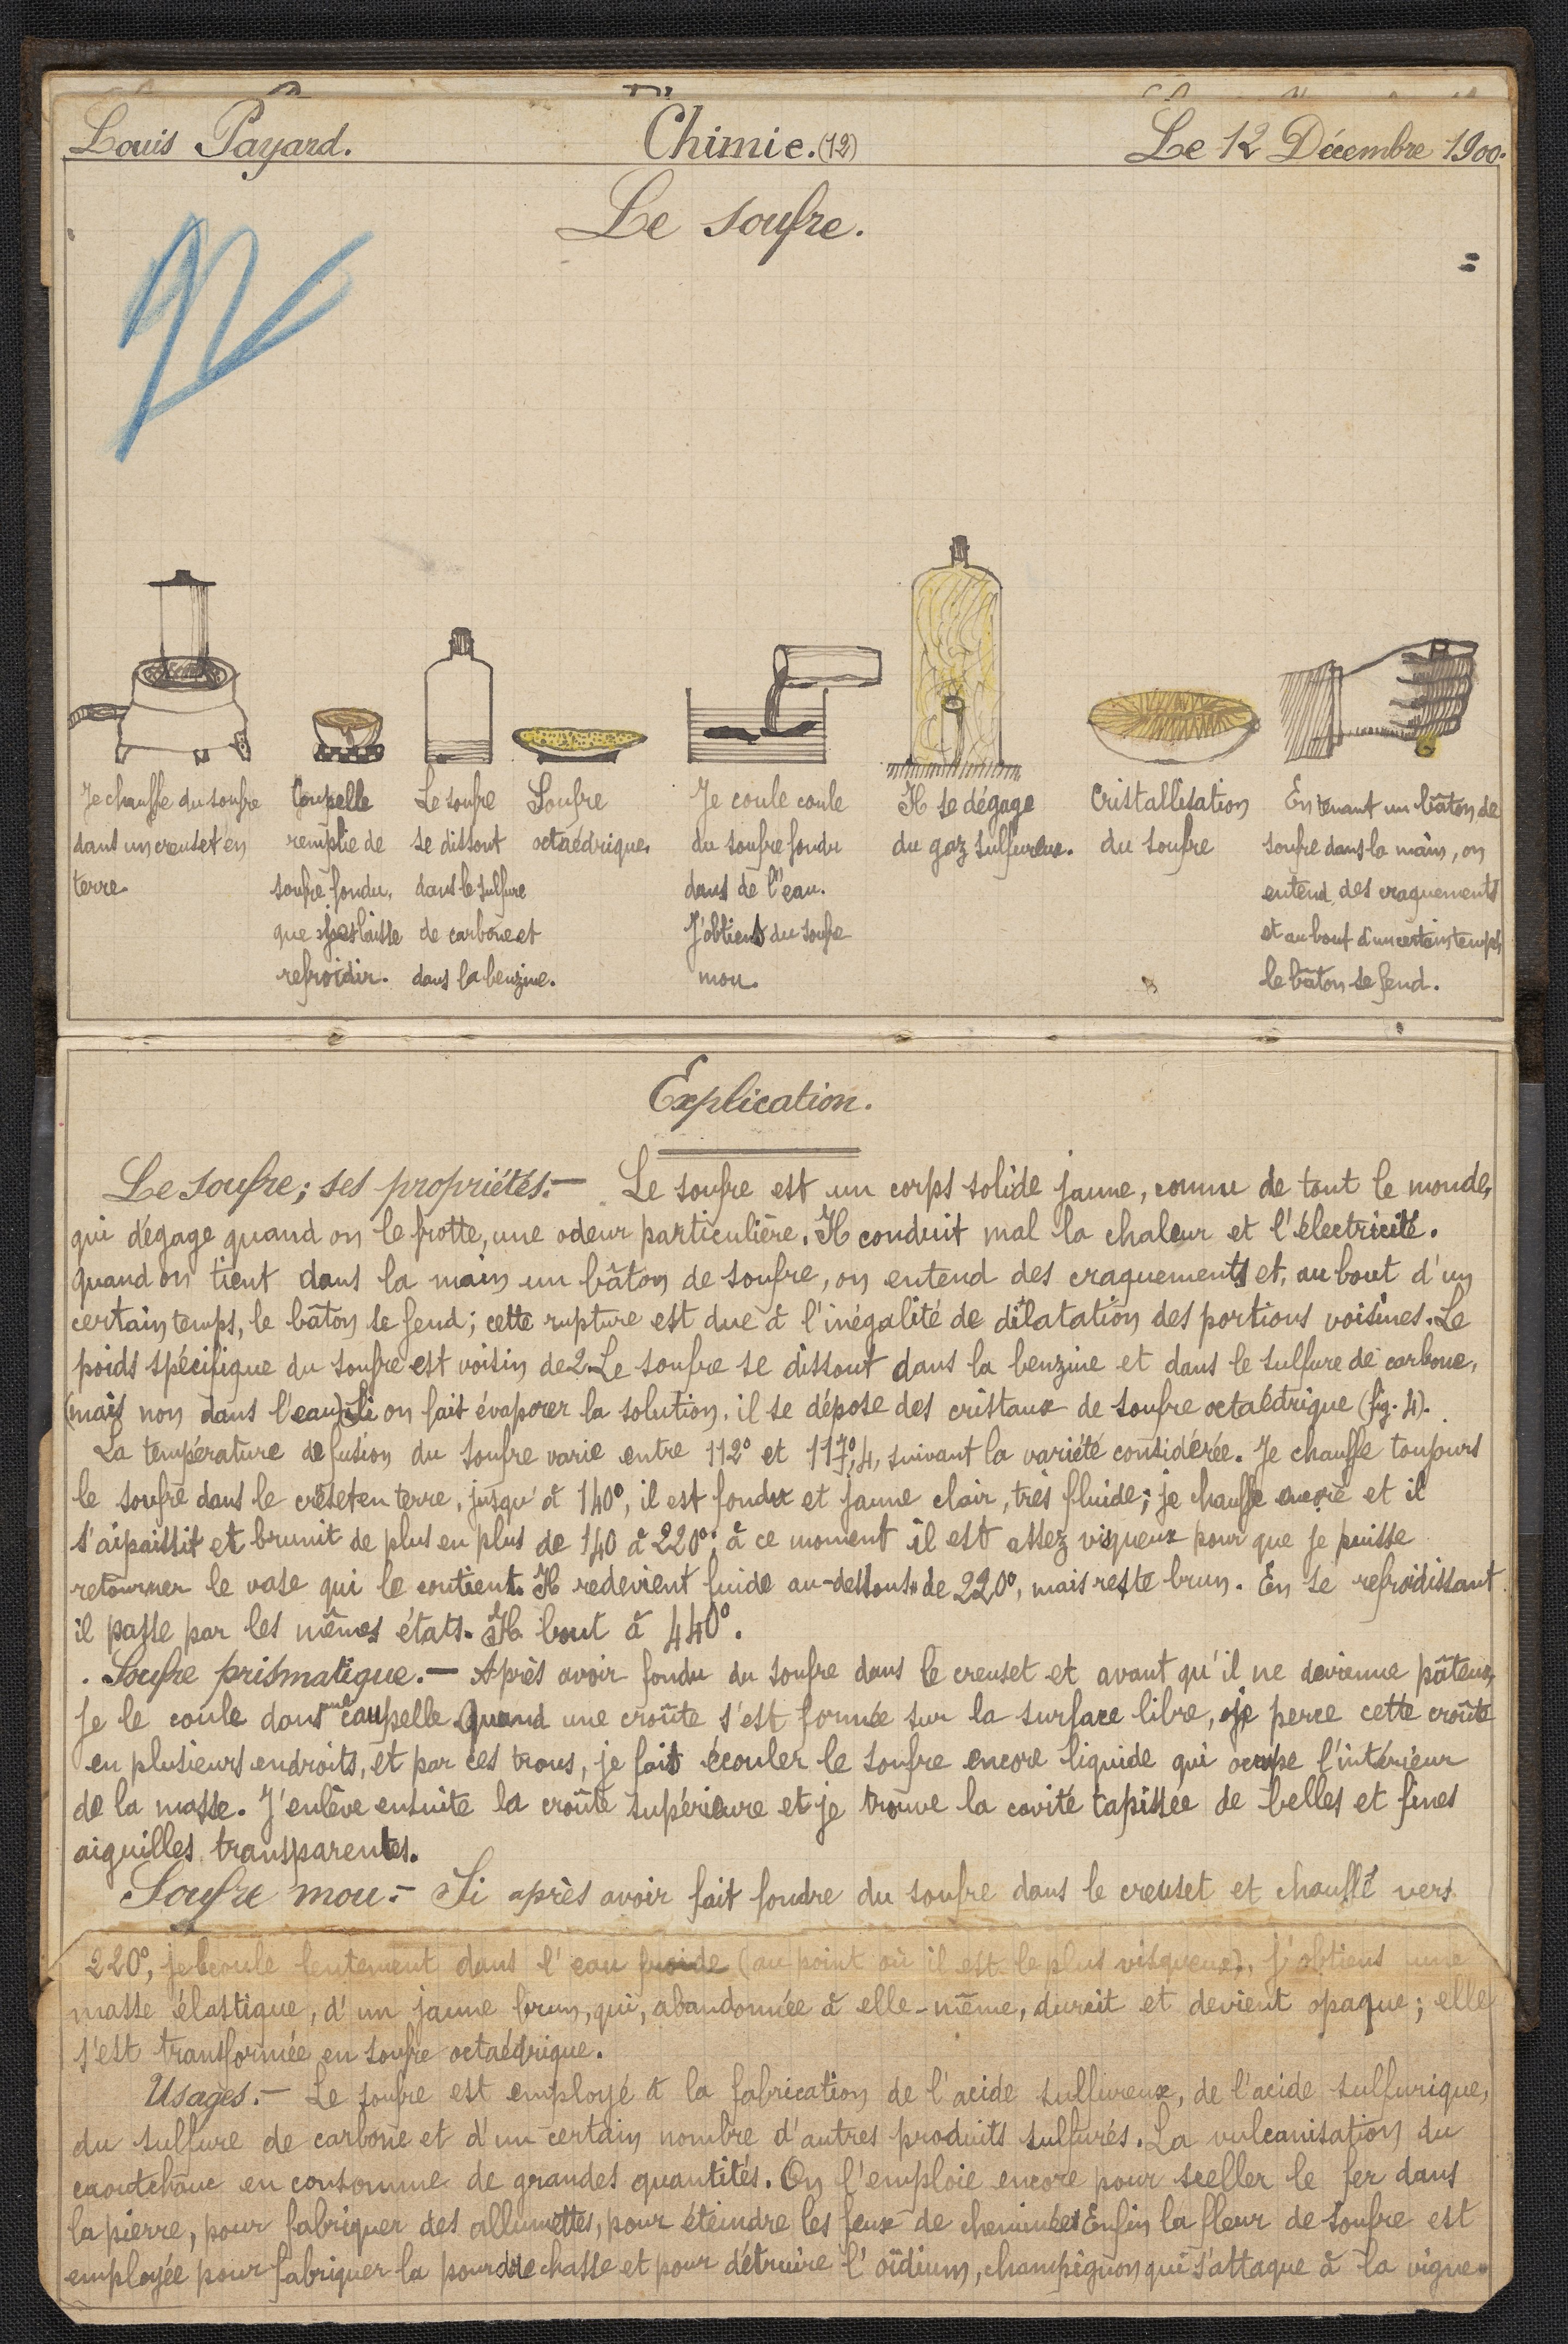 Louis Payard.
Chimie. (12)
Le 12 Décembre 1900.
Le soufre.
Je chauffe du soufre
dans un creuset en
terre.
Coupelle
remplie de
soufre fondu,
que je laisse
refroidir.
Le soufre
se dissout
dans le sulfure
de carbone et
dans la benzine.
Soufre
octaédrique.
Je coule coule
du soufre fondu
dans de l'eau.
J'obtiens du soufre
mou.
Il se dégage
du gaz sulfureux.
Cristallisation
du soufre
En tenant un bâton de
soufre dans la main, on
entend des craquements
et au bout d'un certain temps,
le bâton se fend.
Explication.
Le soufre; ses propriétés.— Le soufre est un corps solide jaune, connu de tout le monde,
qui dégage quand on le frotte, une odeur particulière. Il conduit mal la chaleur et l'électricité.
Quand on tient dans la main un bâton de soufre, on entend des craquements et, au bout d'un
certain temps, le bâton se fend; cette rupture est due à l'inégalité de dilatation des portions voisines. Le
poids spécifique du soufre est voisin de 2. Le soufre se dissout dans la benzine et dans le sulfure de carbone,
(mais non dans l'eau). Si on fait évaporer la solution, il se dépose des cristaux de soufre octaédrique (fig. 4).
La température de fusion du soufre varie entre 112° et 117°,4, suivant la variété considérée. Je chauffe toujours
le soufre dans le creuset en terre, jusqu'à 140°, il est fondu et jaune clair, très fluide; je chauffe encore et il
s'aipaissit et brunit de plus en plus de 140 à 220°; à ce moment il est assez visqueux pour que je puisse
retourner le vase qui le contient. Il redevient fuide au-dessous de 220°, mais reste brun. En se refroidissant
il passe par les mêmes états. Il bout à 440°.
Soufre prismatique.— Après avoir fondu du soufre dans le creuset et avant qu'il ne devienne pâteux,
je le coule dans une coupelle. Quand une croûte s'est formée sur la surface libre, je perce cette croûte
en plusieurs endroits, et par ces trous, je fait écouler le soufre encore liquide qui occupe l'intérieur
de la masse. J'enlève ensuite la croûte supérieure et je trouve la cavité tapissée de belles et fines
aiguilles transparentes.
Soufre mou.— Si après avoir fait fondre du soufre dans le creuset et chauffé vers
220°, je le coule lentement dans l'eau froide (au point où il est le plus visqueux), j'obtiens une
masse élastique, d'un jaune brun, qui, abandonnée à elle-même, durcit et devient opaque; elle
s'est transformée en soufre octaédrique.
Usages.— Le soufre est employé à la fabrication de l'acide sulfureux, de l'acide sulfurique,
du sulfure de carbone et d'un certain nombre d'autres produits sulfurés. La vulcanisation du
caoutchouc en consomme de grandes quantités. On l'emploie encore pour sceller le fer dans
la pierre, pour fabriquer des allumettes, pour éteindre les feux de cheminées. Enfin la fleur de soufre est
employée pour fabriquer la poudre chasse et pour détruire l'oïdium, champignon qui s'attaque à la vigne.